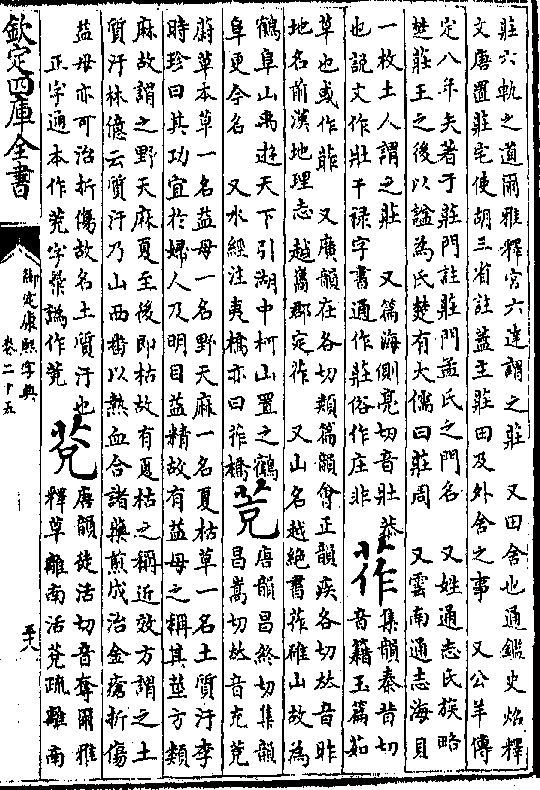 莊六軌之道爾雅釋宮六達謂之莊　又田舍也通鑑史炤釋
文唐置莊宅使胡三省註葢主莊田及外舍之事　又公羊傳
定八年矢著于莊門註莊門孟氏之門名　又姓通志氏族略
楚莊王之後以諡爲氏楚有大儒曰莊周　又雲南通志海貝
一枚土人謂之莊　又篇海側亮切音壯
也說文作壯干祿字書通作莊俗作庄非
莋
集韻秦昔切
音籍玉篇茹
草也或作䔘　又廣韻在各切類篇韻會正韻疾各切𠀤音昨
地名前漢地理志越嶲郡定莋　又山名越絕書莋碓山故爲
鶴阜山禹遊天下引湖中柯山置之鶴
阜更今名　又水經注夷橋亦曰莋橋
茺
唐韻昌終切集韻
昌嵩切𠀤音充茺
蔚草本草一名益母一名野天麻一名夏枯草一名土質汗李
時珍曰其功宜於婦人及明目益精故有益母之稱其莖方類
麻故謂之野天麻夏至後即枯故有夏枯之稱近效方謂之土
質汗林億云質汗乃山西番以熱血合諸藥煎成治金瘡折傷
益母亦可治折傷故名土質汗也
正字通本作茺字彙譌作莌
莌
唐韻徒活切音奪爾雅
釋草離南活莌疏離南
欽定四庫全書
御定康熙字典
卷二十五